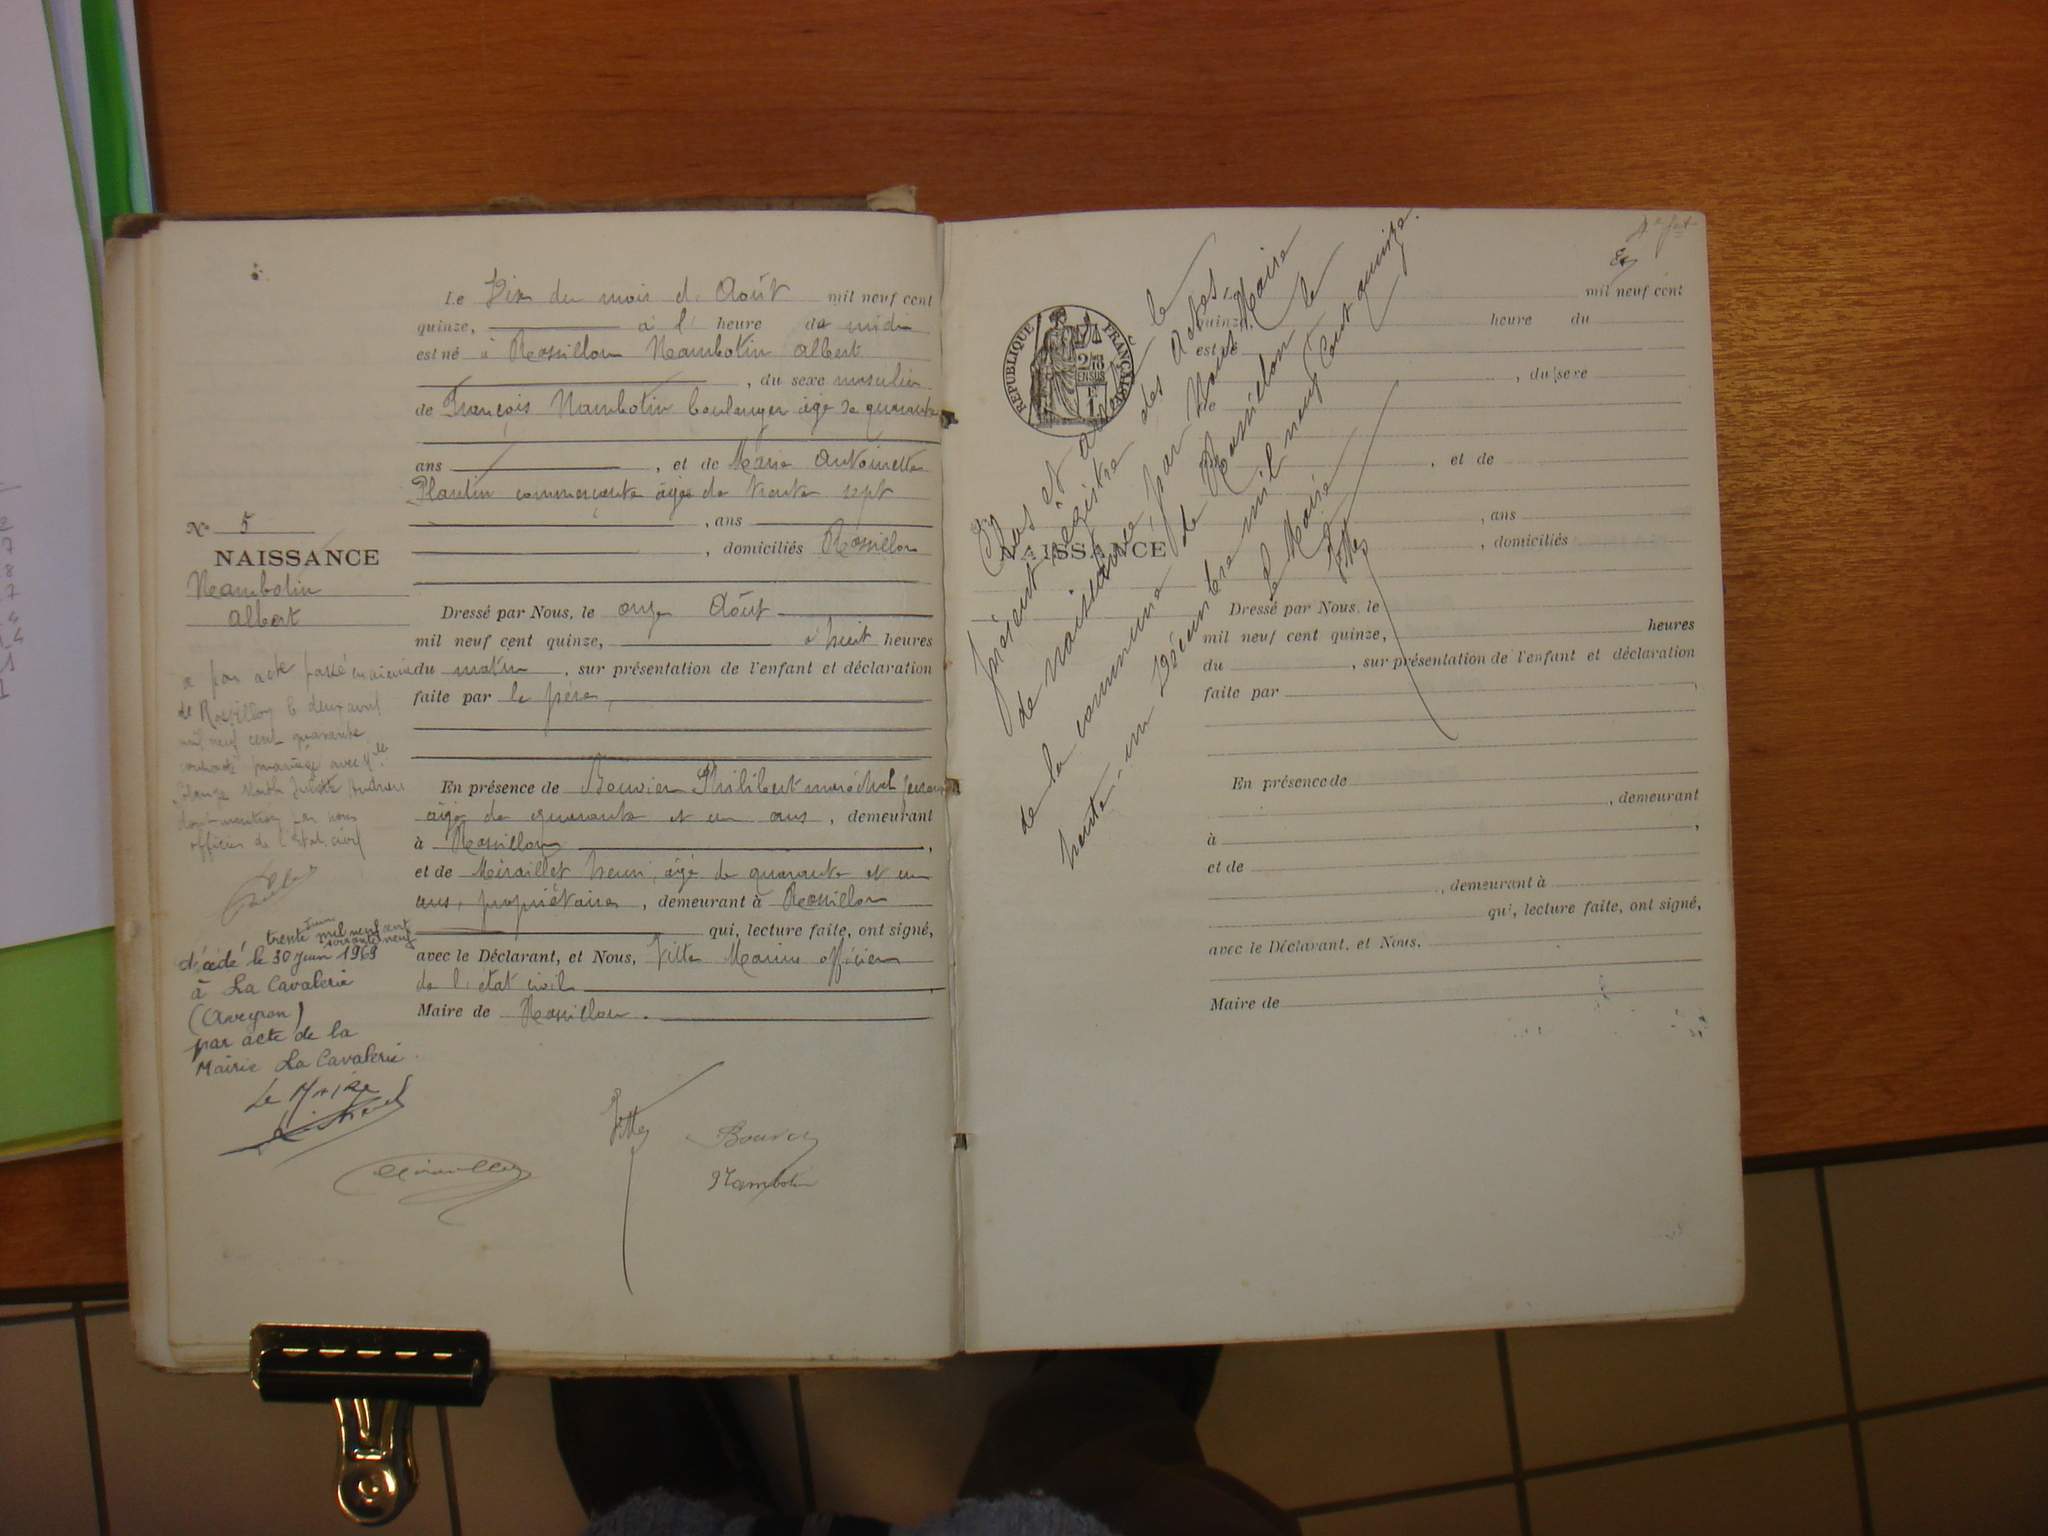 Le Dix du mois d'Août mil neuf cent
quinze, à l' heure de midi
est né à Rossillon Nambotin Albert
, du sexe masculin
de François Nambotin boulanger âgé de quarante
ans , et de Marie Antoinette
Plantin commerçante âgée de trente sept
, ans
, domiciliés Rossillon
N° 5
NAISSANCE
Nambotin
Albert
Dressé par Nous, le onze Août
mil neuf cent quinze, à huit heures
du matin , sur présentation de l'enfant et déclaration
faite par le père,
En présence de Bouvier Philibert maréchal
âgé de quarante et un ans , demeurant
à Rossillon ,
et de Miraillet Henri, âgé de quarante et un
ans, propriétaire , demeurant à Rossillon
qui, lecture faite, ont signé,
avec le Déclarant, et Nous, Vitte Marius officier
de l'état civil
Maire de Rossillon .
a par acte passé en mairie
de Rossillon le deux avril
mil neuf cent quarante
contracté mariage avec Mlle
dont mention par nous
officier de l'état civil
trente juin mil neuf cent
soixante neuf
décédé le 30 Juin 1969
à La Cavalerie
(Aveyron)
par acte de la
Mairie La Cavalerie
Le Maire
Vitte
Bouvier
Nambotin
RÉPUBLIQUE FRANÇAISE
2/10
EN SUS
1
Clos et arrêté le
présent registre des actes
de naissance, par Nous Maire
de la commune de Rossillon le
trente-un Décembre mil neuf cent quinze.
Le Maire
Vitte
Le mil neuf cent
quinze, heure du
est né
, du sexe
de
, et de
, ans
, domiciliés
NAISSANCE
Dressé par Nous, le
mil neuf cent quinze, heures
du , sur présentation de l'enfant et déclaration
faite par ,
En présence de
, demeurant
à ,
et de
, demeurant à
qui, lecture faite, ont signé,
avec le Déclarant, et Nous,
Maire de